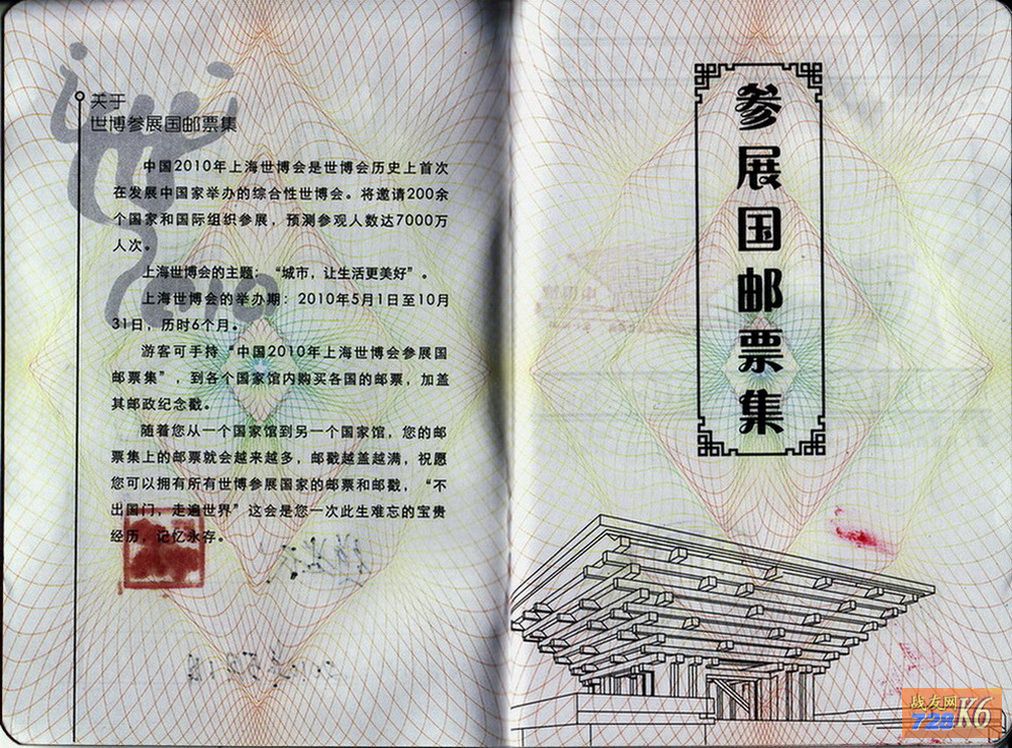 关于
世博参展国邮票集
中国2010年上海世博会是世博会历史上首次
在发展中国家举办的综合性世博会。将邀请200余
个国家和国际组织参展，预测参观人数达7000万
人次。
上海世博会的主题：“城市，让生活更美好”。
上海世博会的举办期：2010年5月1日至10月
31日，历时6个月。
游客可手持“中国2010年上海世博会参展国
邮票集”，到各个国家馆内购买各国的邮票，加盖
其邮政纪念戳。
随着您从一个国家馆到另一个国家馆，您的邮
票集上的邮票就会越来越多，邮戳越盖越满，祝愿
您可以拥有所有世博参展国家的邮票和邮戳，“不
出国门，走遍世界”这会是您一次此生难忘的宝贵
经历，记忆永存。
2010
参展国邮票集
战友网
728 K6